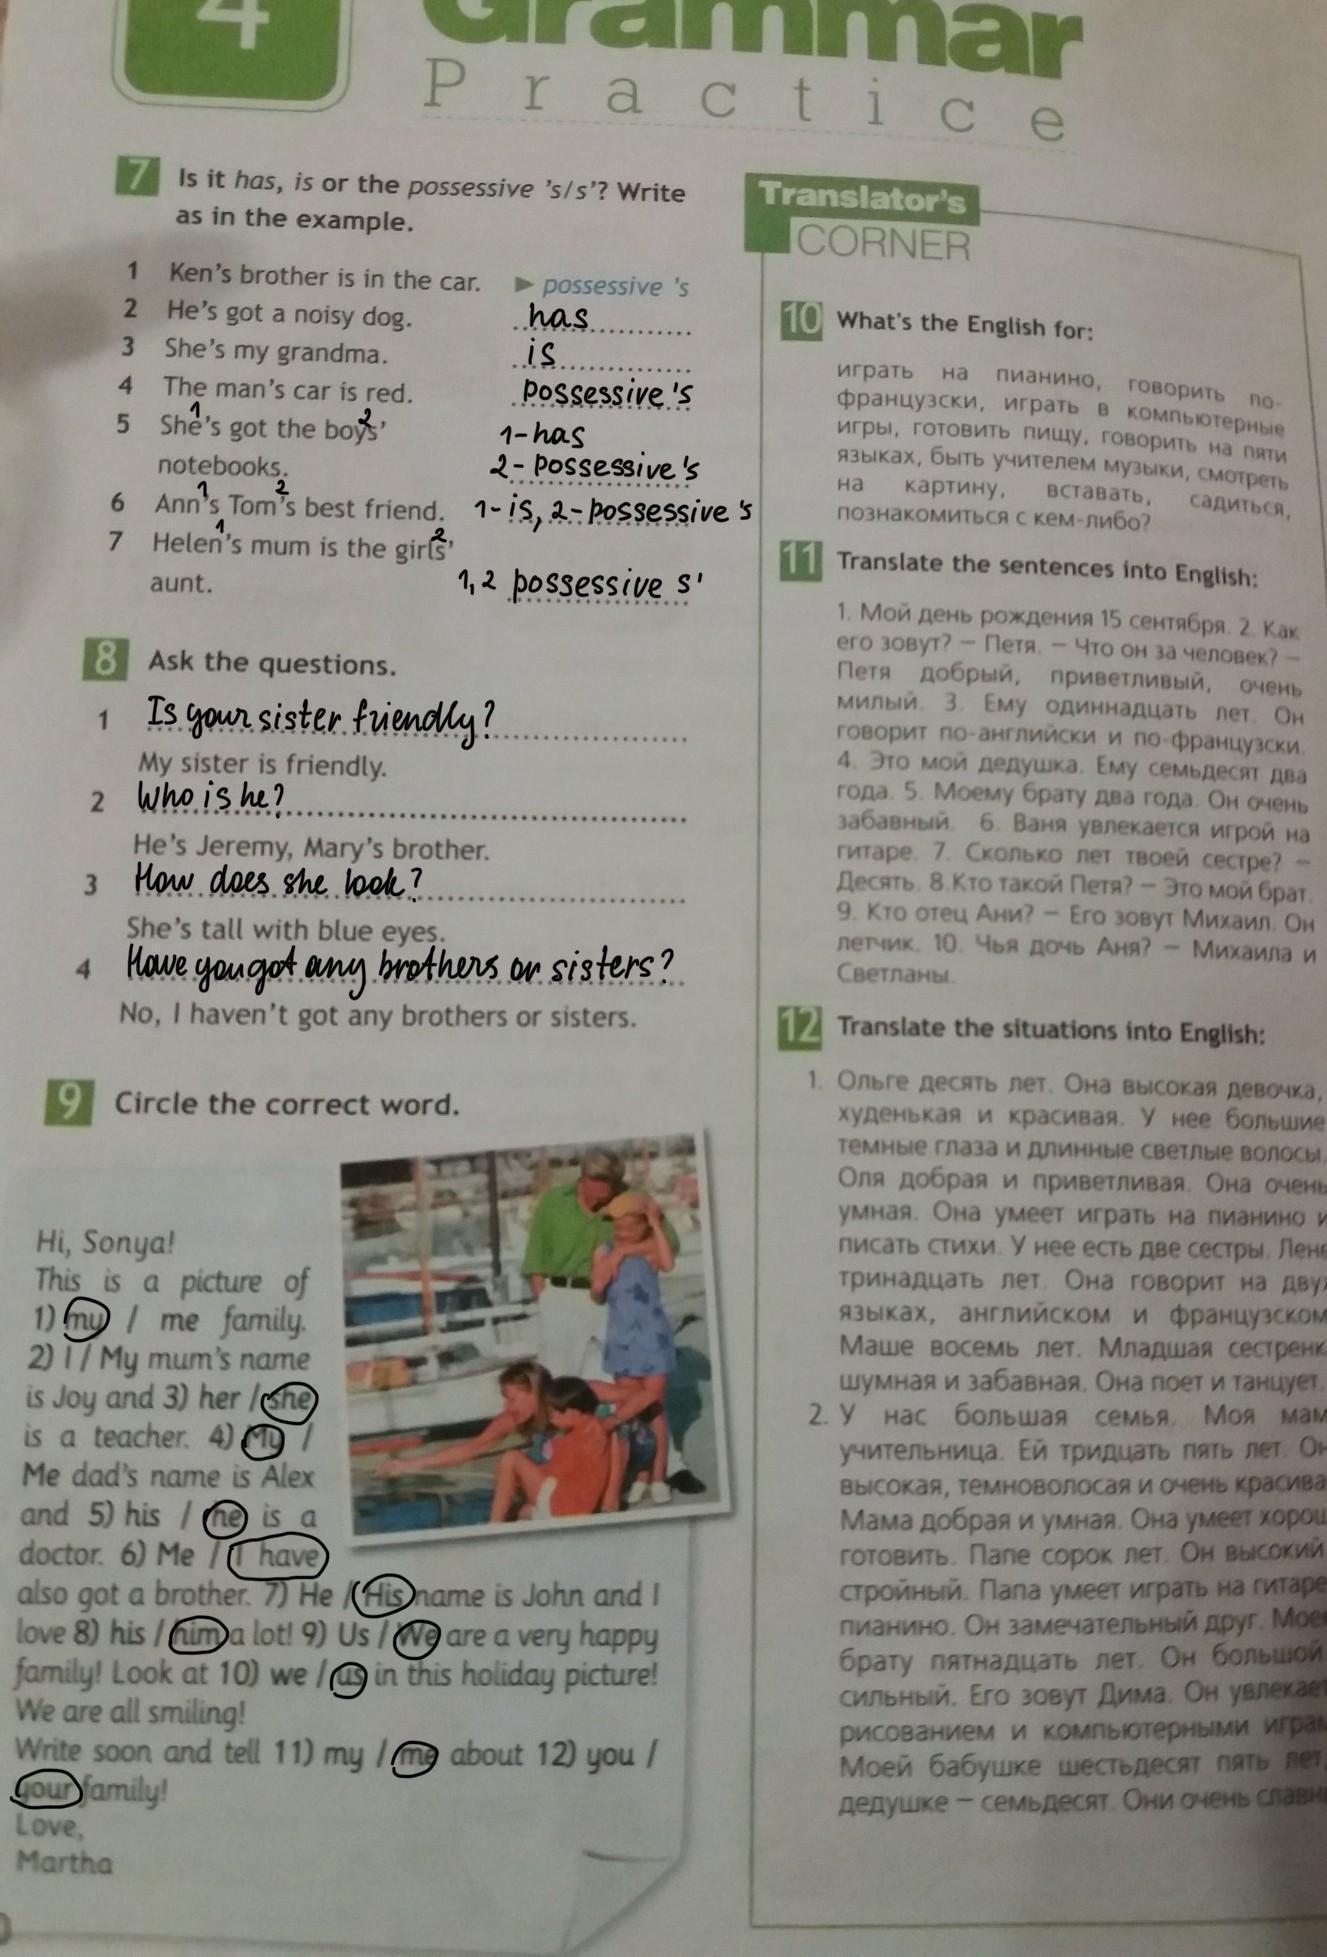 4
Grammar
Practice
7 Is it has, is or the possessive 's/s'? Write
as in the example.
1 Ken's brother is in the car. ► possessive 's
2 He's got a noisy dog. has
3 She's my grandma. is
4 The man's car is red. possessive's
5 She's got the boys' 1-has
notebooks. 2-possessive's
6 Ann's Tom's best friend. 1-is, 2-possessive's
7 Helen's mum is the girls'
aunt. 1,2 possessive s'
8 Ask the questions.
1 Is your sister friendly?
My sister is friendly.
2 Who is he?
He's Jeremy, Mary's brother.
3 How does she look?
She's tall with blue eyes.
4 Have you got any brothers or sisters?
No, I haven't got any brothers or sisters.
9 Circle the correct word.
Hi, Sonya!
This is a picture of
1) my / me family.
2) I / My mum's name
is Joy and 3) her / she
is a teacher. 4) My /
Me dad's name is Alex
and 5) his / he is a
doctor. 6) Me / I have
also got a brother. 7) He / His name is John and I
love 8) his / him a lot! 9) Us / We are a very happy
family! Look at 10) we / us in this holiday picture!
We are all smiling!
Write soon and tell 11) my / me about 12) you /
your family!
Love,
Martha
Translator's
CORNER
10 What's the English for:
играть на пианино, говорить по-
французски, играть в компьютерные
игры, готовить пищу, говорить на пяти
языках, быть учителем музыки, смотреть
на картину, вставать, садиться,
познакомиться с кем-либо?
11 Translate the sentences into English:
1. Мой день рождения 15 сентября. 2. Как
его зовут? – Петя. – Что он за человек? –
Петя добрый, приветливый, очень
милый. 3. Ему одиннадцать лет. Он
говорит по-английски и по-французски.
4. Это мой дедушка. Ему семьдесят два
года. 5. Моему брату два года. Он очень
забавный. 6. Ваня увлекается игрой на
гитаре. 7. Сколько лет твоей сестре? –
Десять. 8.Кто такой Петя? – Это мой брат.
9. Кто отец Ани? – Его зовут Михаил. Он
летчик. 10. Чья дочь Аня? – Михаила и
Светланы.
12 Translate the situations into English:
1. Ольге десять лет. Она высокая девочка,
худенькая и красивая. У нее большие
темные глаза и длинные светлые волосы.
Оля добрая и приветливая. Она очень
умная. Она умеет играть на пианино и
писать стихи. У нее есть две сестры. Лене
тринадцать лет. Она говорит на двух
языках, английском и французском
Маше восемь лет. Младшая сестренк
шумная и забавная. Она поет и танцует.
2. У нас большая семья. Моя мам
учительница. Ей тридцать пять лет. Он
высокая, темноволосая и очень красива
Мама добрая и умная. Она умеет хорош
готовить. Папе сорок лет. Он высокий
стройный. Папа умеет играть на гитаре
пианино. Он замечательный друг. Мое
брату пятнадцать лет. Он большой
сильный. Его зовут Дима. Он увлекает
рисованием и компьютерными играм
Моей бабушке шестьдесят пять лет,
дедушке – семьдесят. Они очень славн